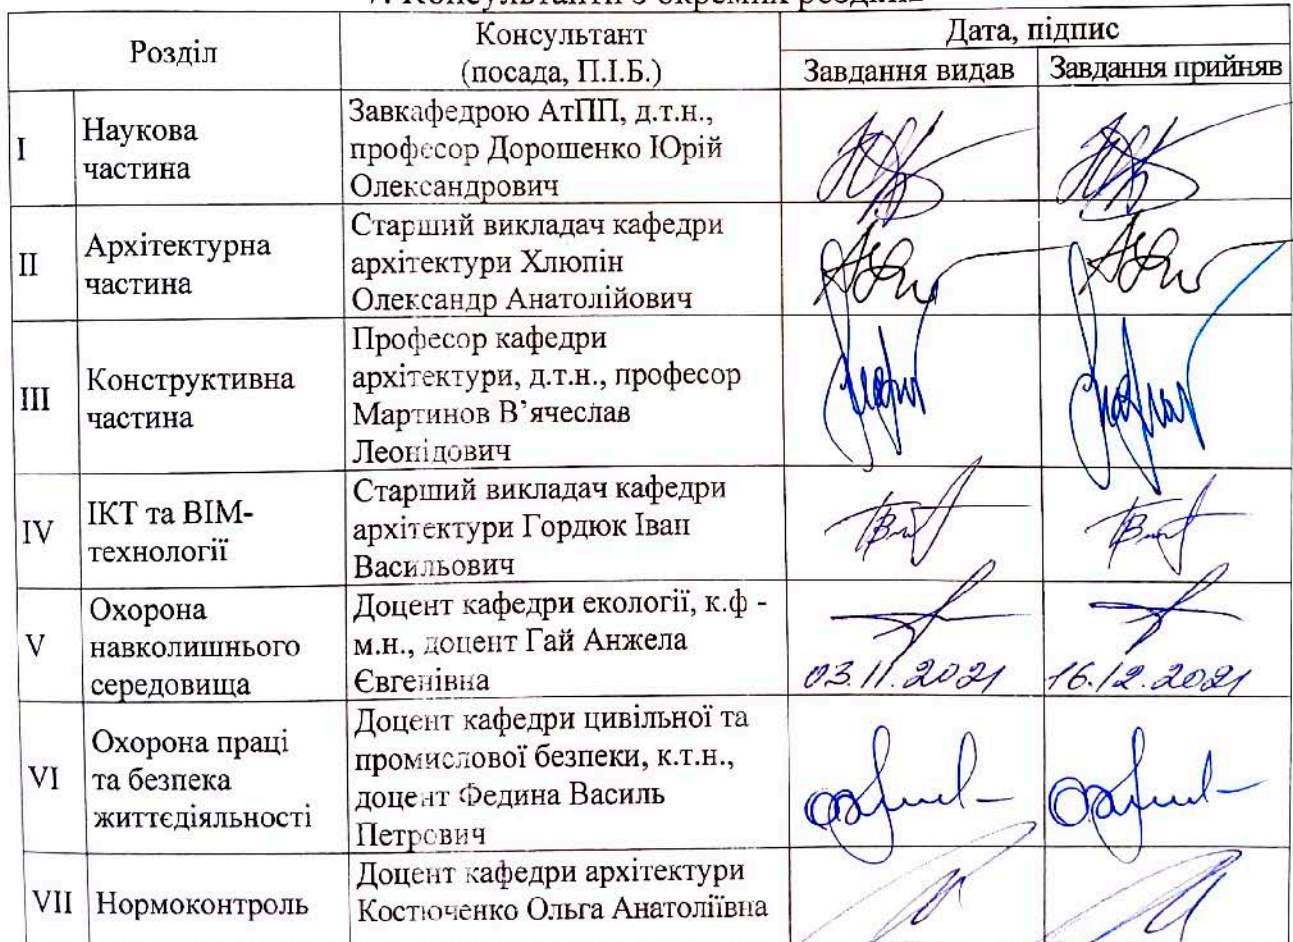 7. Консультанти з окремих розділів
Розділ
Консультант
(посада, П.І.Б.)
Дата, підпис
Завдання видав
Завдання прийняв
I
Наукова
частина
Завкафедрою АтПП, д.т.н.,
професор Дорошенко Юрій
Олександрович
II
Архітектурна
частина
Старший викладач кафедри
архітектури Хлюпін
Олександр Анатолійович
III
Конструктивна
частина
Професор кафедри
архітектури, д.т.н., професор
Мартинов В’ячеслав
Леонідович
IV
ІКТ та ВІМ-
технології
Старший викладач кафедри
архітектури Гордюк Іван
Васильович
V
Охорона
навколишнього
середовища
Доцент кафедри екології, к.ф -
м.н., доцент Гай Анжела
Євгенівна
03.11.2021
16.12.2021
VI
Охорона праці
та безпека
життєдіяльності
Доцент кафедри цивільної та
промислової безпеки, к.т.н.,
доцент Федина Василь
Петрович
VII
Нормоконтроль
Доцент кафедри архітектури
Костюченко Ольга Анатоліївна